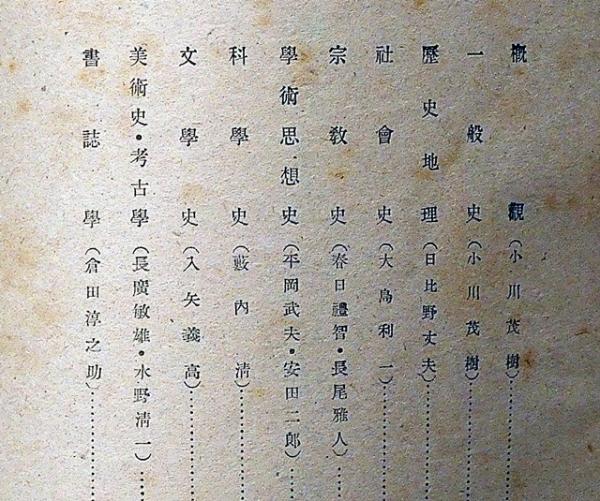 概觀(小川茂樹)
一般史(小川茂樹)
歷史地理(日比野丈夫)
社會史(大島利一)
宗敎史(春日禮智・長尾雅人)
學術思想史(平岡武夫・安田二郞)
科學史(藪內淸)
文學史(入矢義高)
美術史・考古學(長廣敏雄・水野淸一)
書誌學(倉田淳之助)